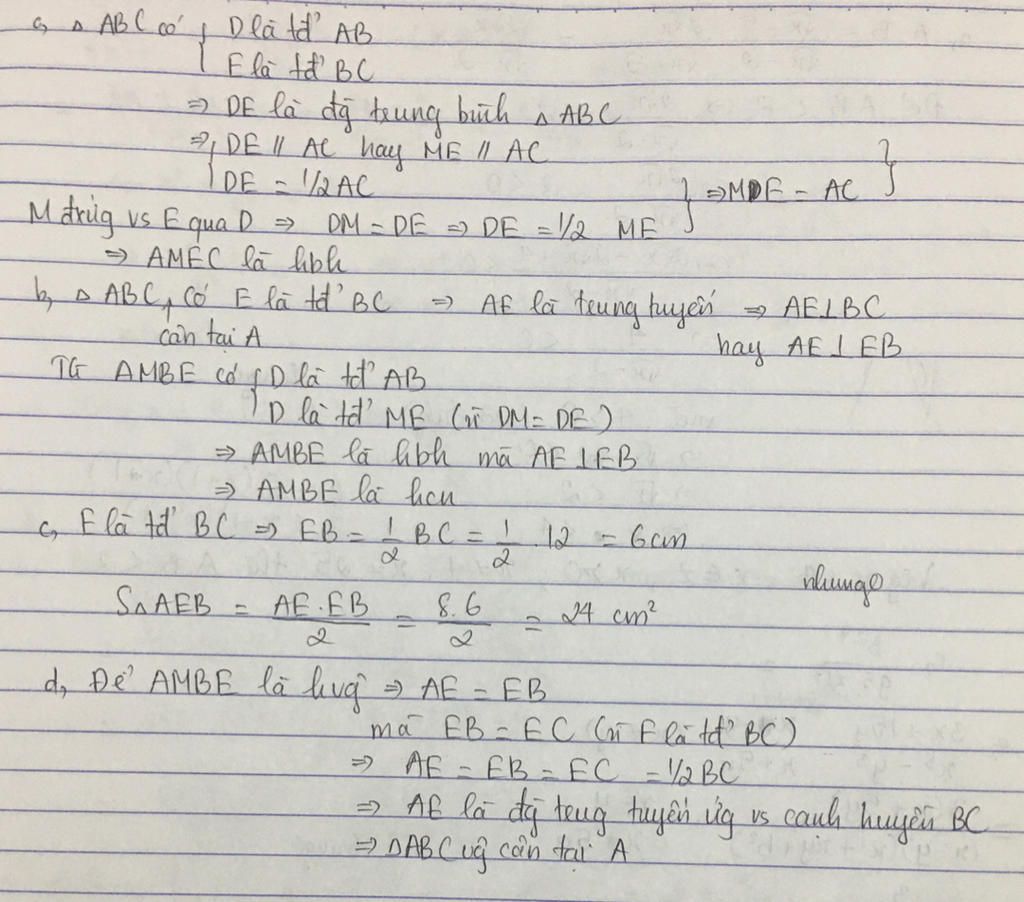 a, △ ABC có { D là tđ' AB
E là tđ' BC
⇒ DE là đg trung bình △ ABC
⇒ { DE // AC hay ME // AC }
DE = 1/2 AC } ⇒ MDE = AC
M đxứg vs E qua D ⇒ DM = DE ⇒ DE = 1/2 ME
⇒ AMEC là hbh
b, △ ABC, có E là tđ' BC ⇒ AE là trung tuyến ⇒ AE⊥BC
cân tại A hay AE ⊥ EB
TG AMBE có { D là tđ' AB
D là tđ' ME (vì DM = DE)
⇒ AMBE là hbh mà AE ⊥ EB
⇒ AMBE là hcn
c, E là tđ' BC ⇒ EB = 1/2 BC = 1/2 . 12 = 6cm
nhung
S△AEB = AE.EB/2 = 8.6/2 = 24 cm²
d, Để AMBE là hvg ⇒ AE = EB
mà EB = EC (vì E là tđ' BC)
⇒ AE = EB = EC = 1/2 BC
⇒ AE là đg trug tuyến ứg vs cạnh huyền BC
⇒ △ABC vg cân tại A